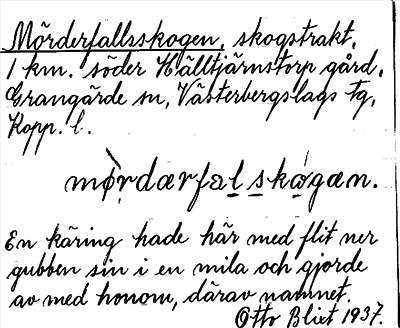 Mörderfallsskogen, skogstrakt,
1 km. söder Hälltjärnstorp gård,
Grangärde sn, Västerbergslags fg,
Kopp. l.
mø̀rdærfalskógæn.
En käring hade här med flit ner
gubben sin i en mila och gjorde
av med honom, därav namnet.
Otto Blixt 1937.